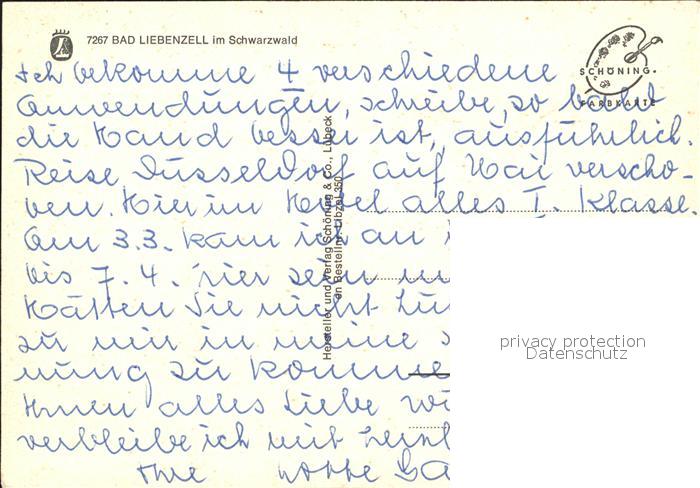 7267 BAD LIEBENZELL im Schwarzwald
SCHÖNING
FARBKARTE
Ich bekomme 4 verschiedene
Anwendungen, schreibe, so bald
die Hand besser ist, ausführlich.
Reise Düsseldorf auf Mai verscho-
ben. Hier im Hotel alles I. Klasse.
Am 3.3. kam ich an
bis 7.4. hier sein
Hätten Sie nicht
zu mir in meine
nung zu kommen
Ihnen alles Liebe
verbleibe ich mit
Ihre
Hersteller und Verlag Schöning & Co., Lübeck
privacy protection
Datenschutz